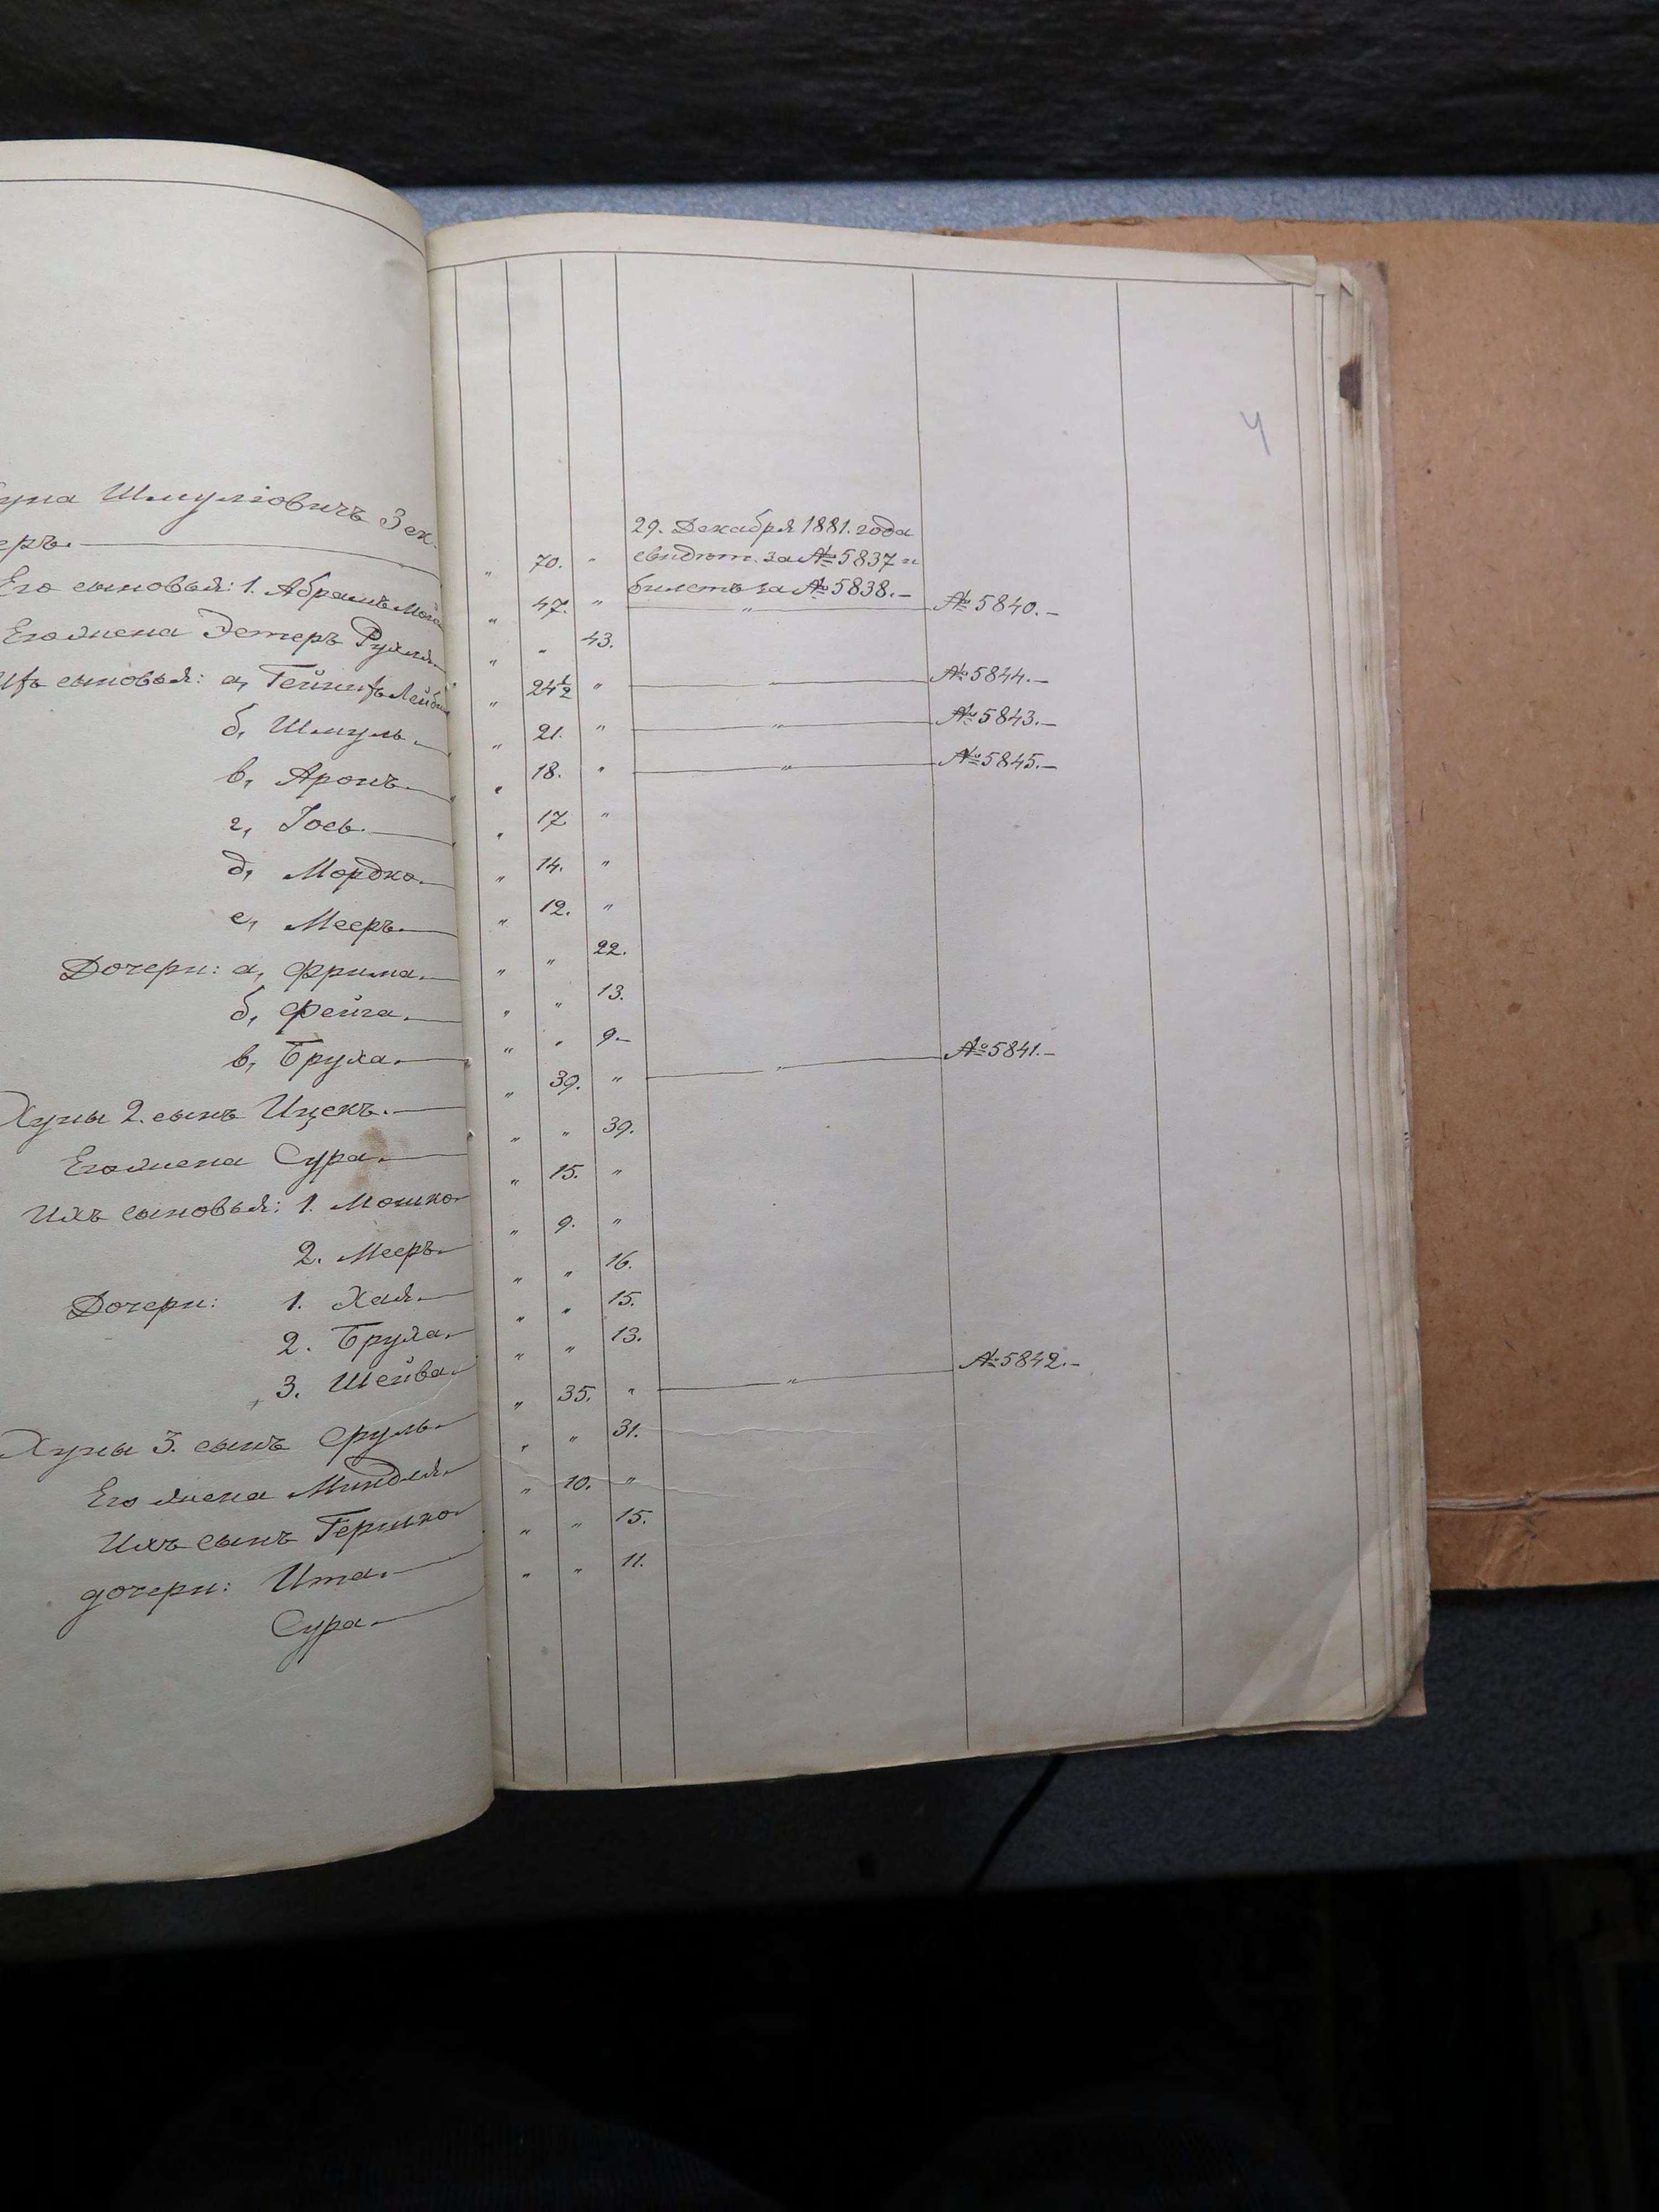 4
Шмулiовичъ Зек-
еръ.
29. Декабря 1881. года
70. " свидѣт. за № 5837 и
билетъ за № 5838.-
Его сыновья: 1. Абрамъ " 47. " " № 5840.-
Его жена Эстеръ Рухля " " 43.
Ихъ сыновья: а, Гейнихъ Лейба " 24½ " " № 5844.-
б, Шмуль " 21. " " № 5843.-
в, Аронъ " 18. " " № 5845.-
г, Iось " 17 "
д, Мордко " 14. "
е, Мееръ " 12. "
Дочери: а, Фрима " " 22.
б, Фейга " " 13.
в, Бруха " " 9.-
Хуны 2. сынъ Ицекъ. " 39. " " № 5841.-
Его жена Сура " " 39.
Ихъ сыновья: 1. Мошко " 15. "
2. Мееръ " 9. "
Дочери: 1. Хая " " 16.
2. Бруха " " 15.
3. Шейва " " 13.
Хуны 3. сынъ Сруль " 35. " " № 5842.-
Его жена Миндля " " 31.
Ихъ сынъ Гершко " 10. "
дочери: Ита " " 15.
Сура " " 11.